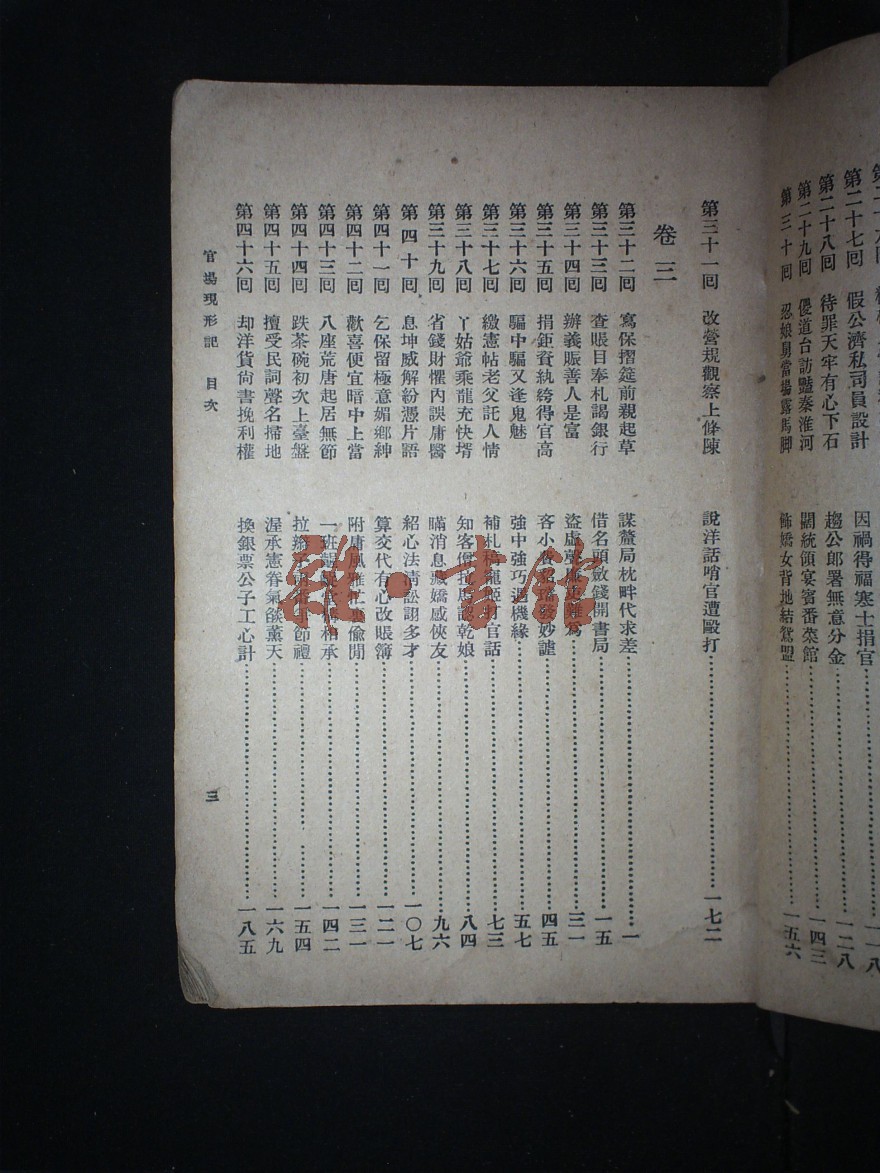 第二十七回 假公濟私司員設計 因禍得福寒士捐官 一一八
第二十八回 待罪天牢有心下石 趨公郎署無意分金 一二八
第二十九回 傻道台訪豔秦淮河 闊統領宴賓番菜館 一四三
第三十回 認娘舅當場露馬脚 飾嬌女背地結鴛盟 一五六
第三十一回 改營規觀察上條陳 說洋話哨官遭毆打 一七二
卷三
第三十二回 寫保摺筵前親起草 謀釐局枕畔代求差 一
第三十三回 查賬目奉札謁銀行 借名頭斂錢開書局 一五
第三十四回 辦義賑善人是富 盜虛聲廉吏難爲 三一
第三十五回 捐鉅資紈絝得官高 吝小費貂璫發妙謔 四五
第三十六回 騙中騙又逢鬼魅 強中強巧遇機緣 五七
第三十七回 繳憲帖老父託人情 補札稿寵姬打官話 七三
第三十八回 丫姑爺乘龍充快壻 知客僧拉馬認乾娘 八四
第三十九回 省錢財懼內誤庸醫 瞞消息藏嬌感俠友 九六
第四十回 息坤威解紛憑片語 紹心法清訟詡多才 一〇七
第四十一回 乞保留極意媚鄉紳 算交代有心改賬簿 一二一
第四十二回 歡喜便宜暗中上當 附庸風雅忙裏偷閒 一三一
第四十三回 八座荒唐起居無節 一班齷齪堂構相承 一四二
第四十四回 跌茶碗初次上臺盤 拉辮子 節禮 一五四
第四十五回 擅受民詞聲名掃地 渥承憲眷氣燄薰天 一六九
第四十六回 却洋貨尙書挽利權 換銀票公子工心計 一八五
官場現形記 目次 三
雜·書館